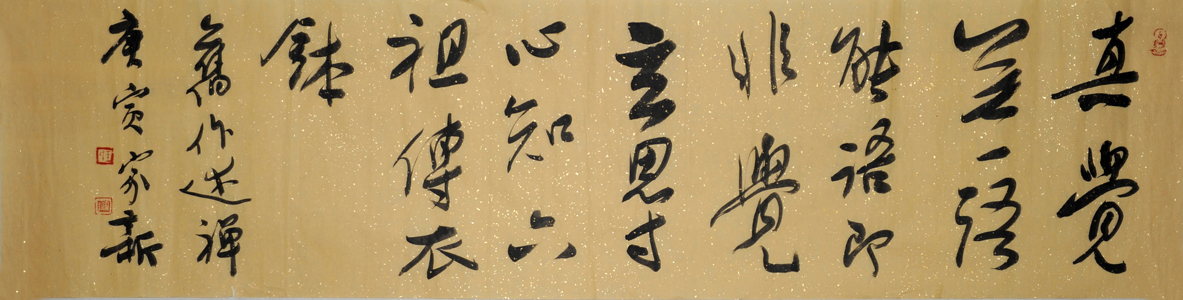 真覺
無一語
能語即
非覺
玄思寸
心知六
祖傳衣
鉢
舊作述禪
庚寅家新